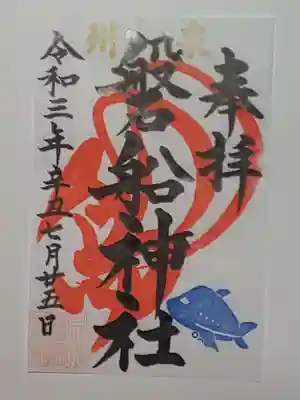 泉州
奉拝
磐船神社
令和三年辛丑七月廿五日